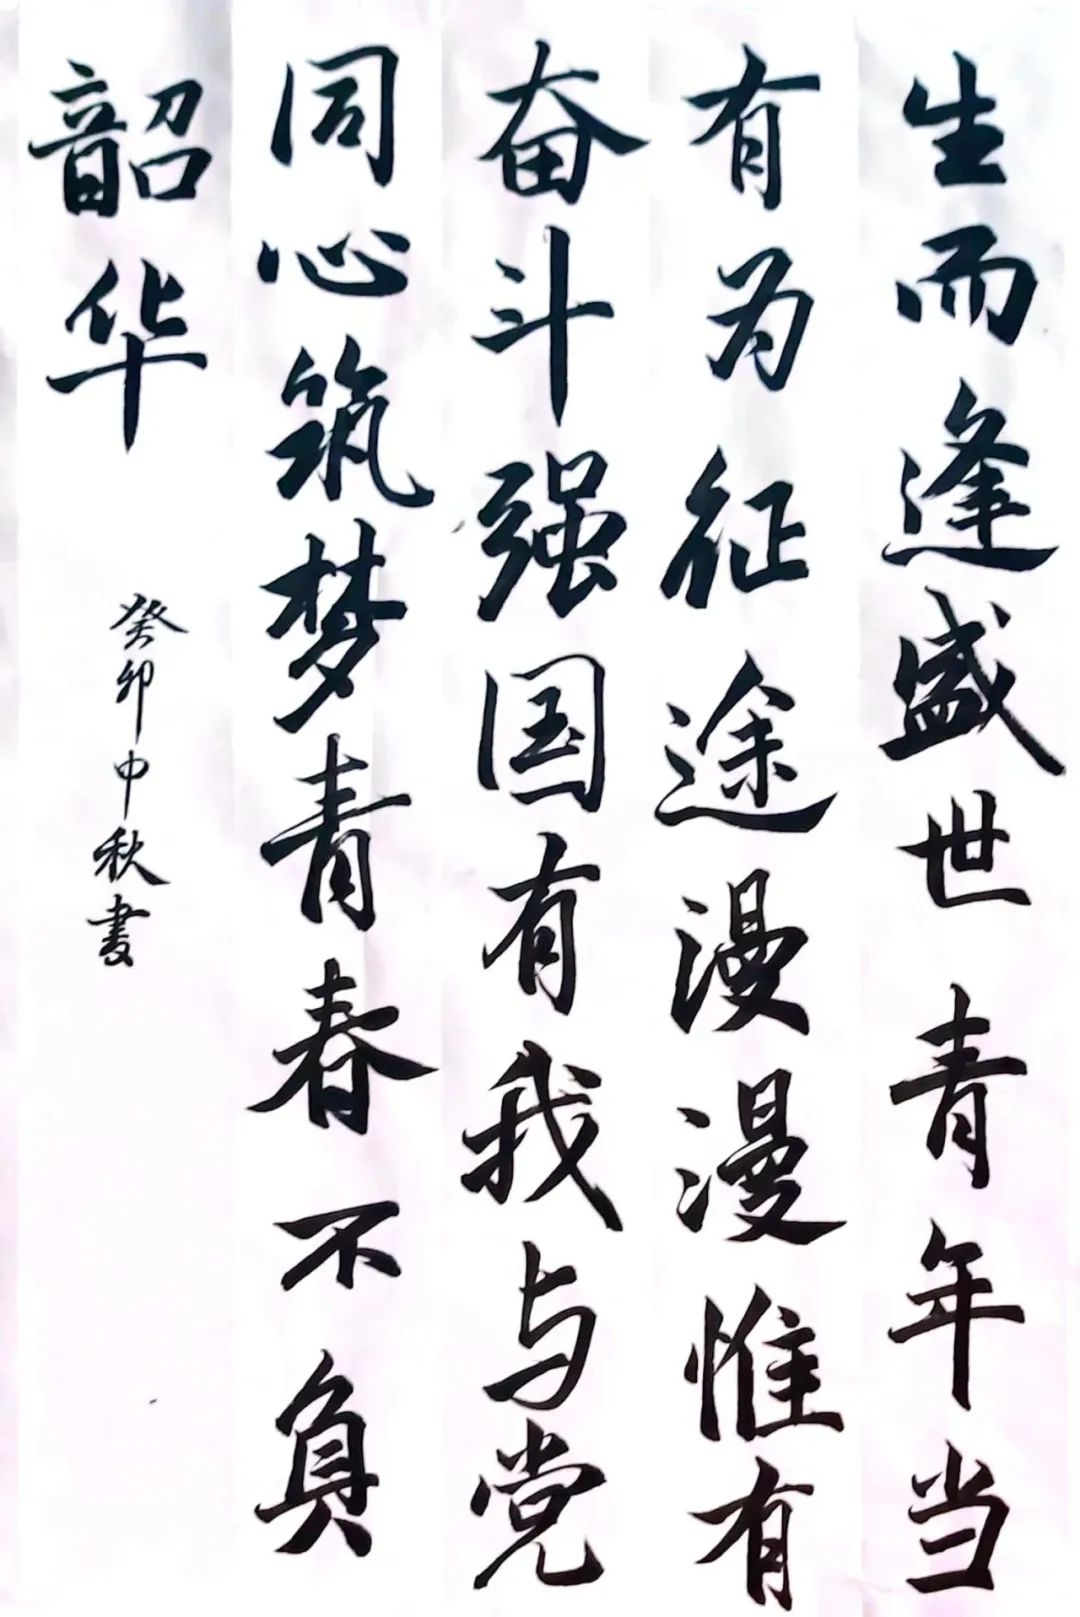 生而逢盛世青年当
有为征途漫漫惟有
奋斗强国有我与党
同心筑梦青春不负
韶华
癸卯中秋書